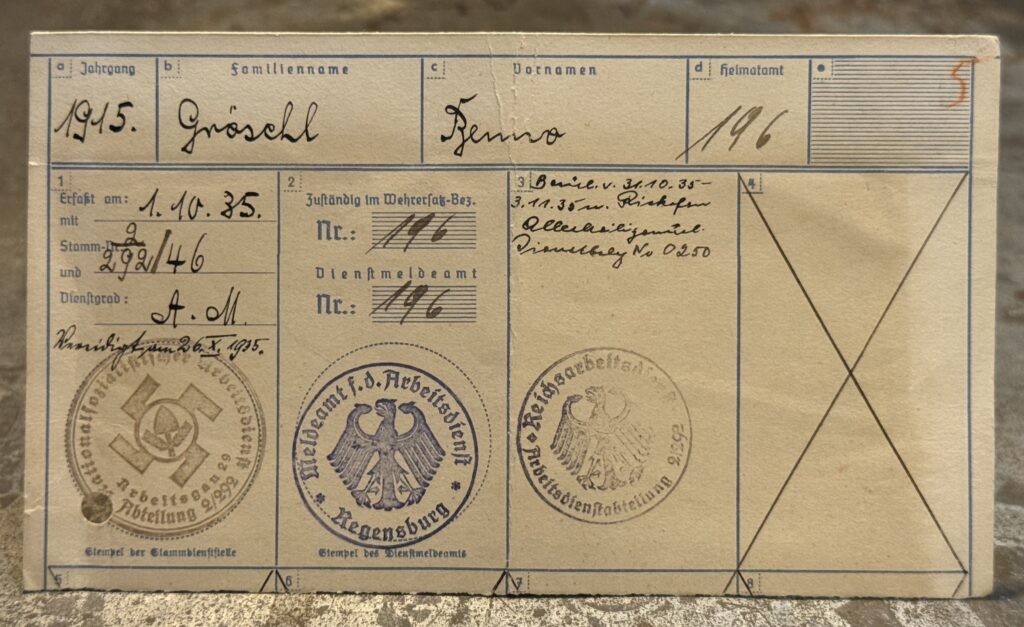 a Jahrgang
b Familienname
c Vornamen
d Heimatamt
e
5
1915.
Gröschl
Benno
196
1
Erfaßt am: 1.10.35.
mit
Stamm-Nr. 2
292/46
und
Dienstgrad:
A.M.
Vereidigt am 26.X.1935.
Nationalsozialistischer Arbeitsdienst
Arbeitsgau 29
Abteilung 2/292
Stempel der Stammdienststelle
2
Zuständig im Wehrersatz-Bez.
Nr.: 196
Dienstmeldeamt
Nr.: 196
Meldeamt f.d. Arbeitsdienst
* Regensburg *
Stempel des Dienstmeldeamts
3
v. 31.10.35–
3.11.35 n.
No 0250
Reichsarbeitsdienst
Arbeitsdienstabteilung 2/292
4
5
6
7
8